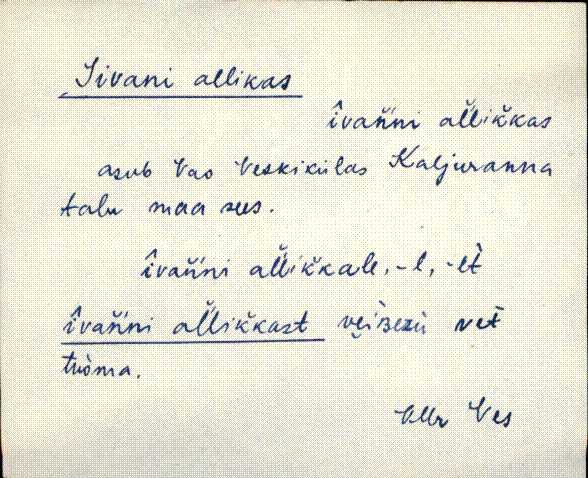 Iivani allikas
îvan̆ni al̆lik̆kas
asub Vao Veskikülas Kaljuranna
talu maa sees.
îvan̆ni al̆lik̆kale, -l, -lt̀
îvan̆ni al̆lik̆kast
tùoma.
VMr Ves